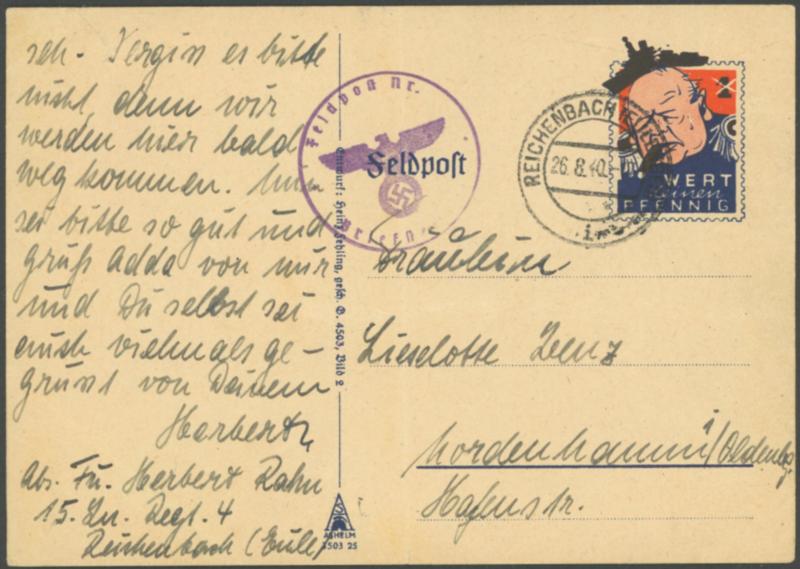 seh. Vergiss es bitte
nicht, denn wir
werden hier bald
weg kommen. Nun
sei bitte so gut und
grüß Adda von mir
und Du selbst sei
auch vielmals ge-
grüsst von Deinem
Herbert
Abs. Fu. Herbert Rahn
15. Ln. Regt. 4
Reichenbach (Eule)
Feldpost Nr.
Feldpost
Entwurf: Heinz Fehling, gesch. D. 4503, Bild 2
ASHELM
4503 25
REICHENBACH
26.8.40.
WERT
keinen
PFENNIG
Fräulein
Lieselotte Zenz
Nordenhamm i/Oldenbg.
Hafenstr.